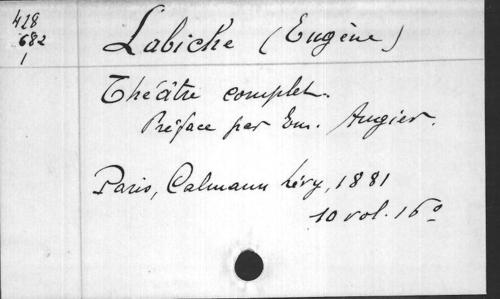 428
682
1
Labiche (Eugène)
Théâtre complet.
Préface par Em. Augier.
Paris, Calmann Lévy, 1881
10 vol. 16°